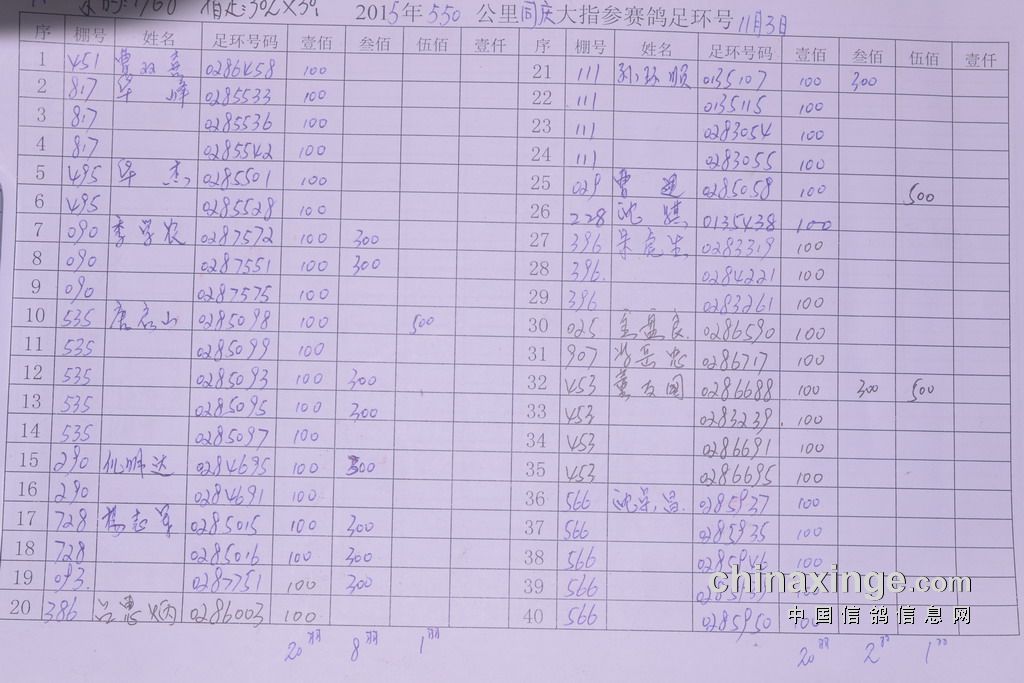 2015年550公里同庆大指参赛鸽足环号 11月3日
序 棚号 姓名 足环号码 壹佰 叁佰 伍佰 壹仟 序 棚号 姓名 足环号码 壹佰 叁佰 伍佰 壹仟
1 451 0286458 100
2 817 华峰 0285533 100
3 817 0285536 100
4 817 0285542 100
5 495 华杰 0285501 100
6 495 0285528 100
7 090 李学农 0287572 100 300
8 090 0287551 100 300
9 090 0287575 100
10 535 0285098 100 500
11 535 0285099 100
12 535 0285093 100 300
13 535 0285095 100 300
14 535 0285097 100
15 290 0284695 100 300
16 290 0284691 100
17 728 杨志军 0285015 100 300
18 728 0285016 100 300
19 093 0287751 100 300
20 386 0286003 100
20羽 8羽 1羽
21 111 0135107 100 300
22 111 0135115 100
23 111 0283054 100
24 111 0283055 100
25 029 曹进 0285058 100 500
26 228 0135438 100
27 396 0283319 100
28 396 0284221 100
29 396 0283261 100
30 025 0286590 100
31 907 0286717 100
32 453 0286688 100 300 500
33 453 0283239 100
34 453 0286691 100
35 453 0286695 100
36 566 沈荣昌 0285937 100
37 566 0285935 100
38 566 100
39 566
40 566 0285950 100
20羽 2羽 1羽
chinaxinge.com
中国信鸽信息网